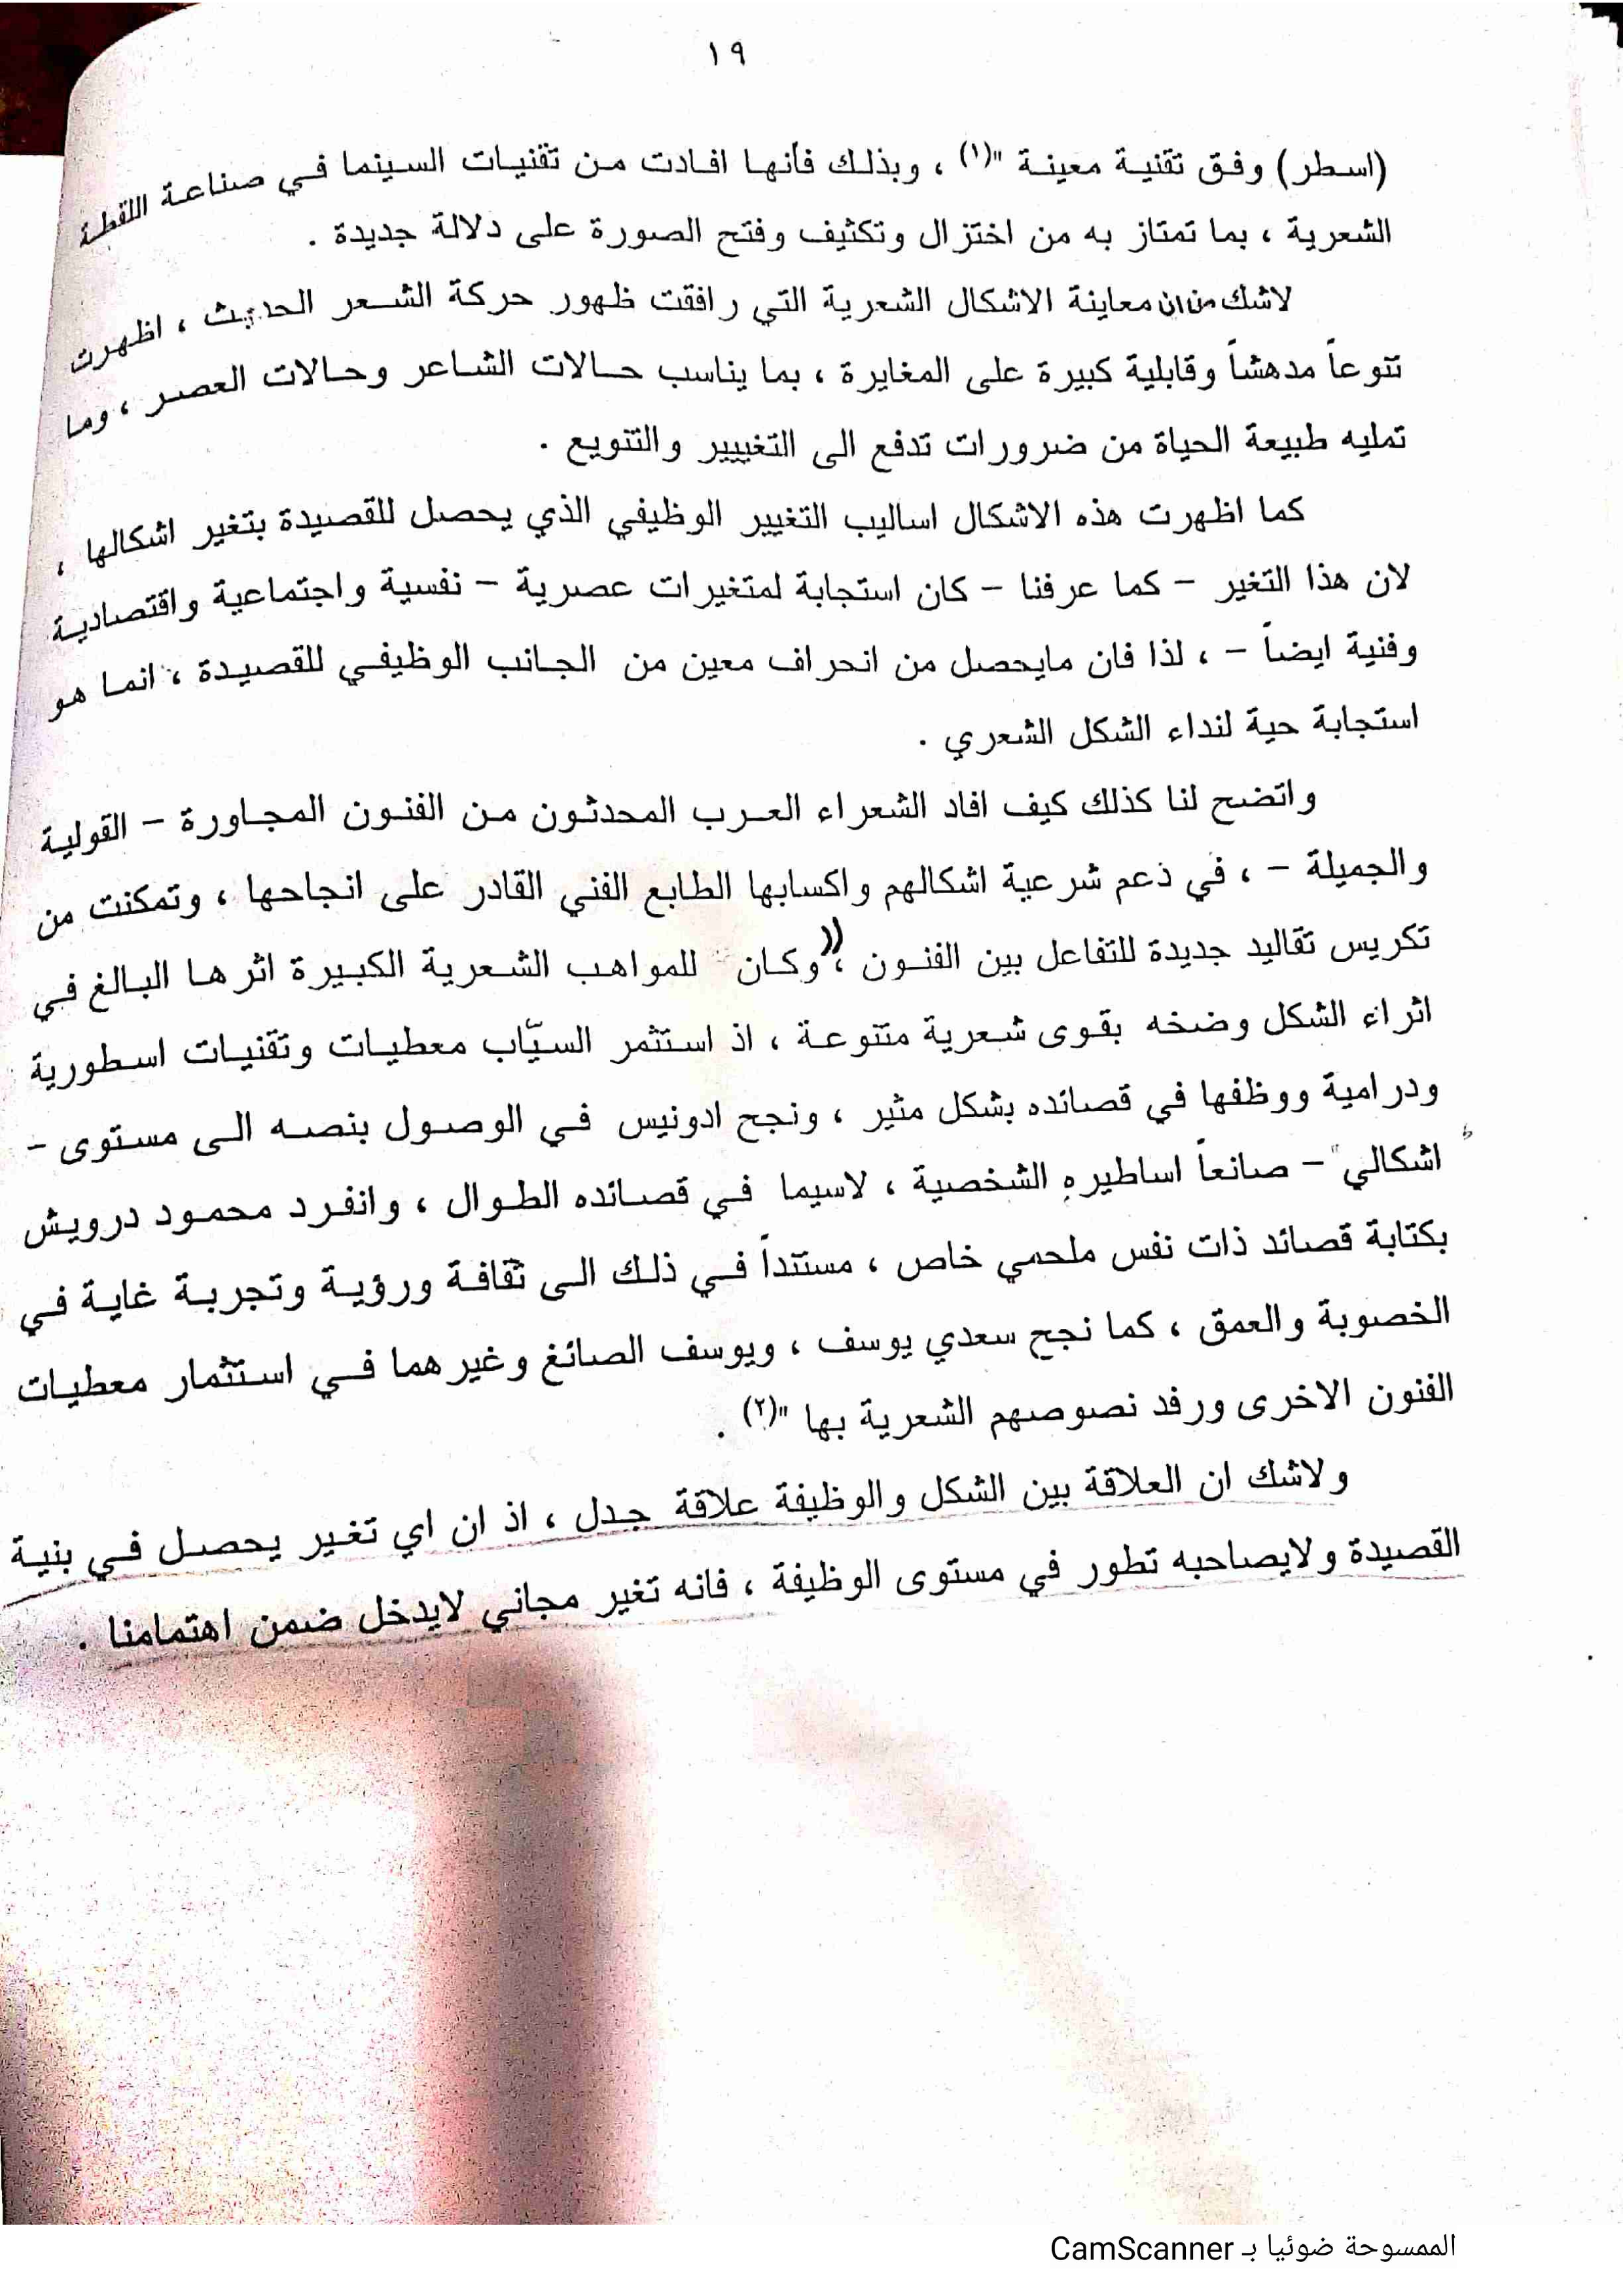 ١٩
(اسطر) وفق تقنية معينة "(١) ، وبذلك فأنها افادت من تقنيات السينما في صناعة اللقطة
الشعرية ، بما تمتاز به من اختزال وتكثيف وفتح الصورة على دلالة جديدة .
لاشك من ان معاينة الاشكال الشعرية التي رافقت ظهور حركة الشعر الحديث ، اظهرت
تنوعاً مدهشاً وقابلية كبيرة على المغايرة ، بما يناسب حالات الشاعر وحالات العصر ، وما
تمليه طبيعة الحياة من ضرورات تدفع الى التغيير والتنويع .
كما اظهرت هذه الاشكال اساليب التغيير الوظيفي الذي يحصل للقصيدة بتغير اشكالها ،
لان هذا التغير – كما عرفنا – كان استجابة لمتغيرات عصرية – نفسية واجتماعية واقتصادية
وفنية ايضاً – ، لذا فان مايحصل من انحراف معين من الجانب الوظيفي للقصيدة ، انما هو
استجابة حية لنداء الشكل الشعري .
واتضح لنا كذلك كيف افاد الشعراء العرب المحدثون من الفنون المجاورة – القولية
والجميلة – ، في دعم شرعية اشكالهم واكسابها الطابع الفني القادر على انجاحها ، وتمكنت من
تكريس تقاليد جديدة للتفاعل بين الفنون ، ((وكان للمواهب الشعرية الكبيرة اثرها البالغ في
اثراء الشكل وضخه بقوى شعرية متنوعة ، اذ استثمر السيّاب معطيات وتقنيات اسطورية
ودرامية ووظفها في قصائده بشكل مثير ، ونجح ادونيس في الوصول بنصه الى مستوى –
اشكالي – صانعاً اساطيره الشخصية ، لاسيما في قصائده الطوال ، وانفرد محمود درويش
بكتابة قصائد ذات نفس ملحمي خاص ، مستنداً في ذلك الى ثقافة ورؤية وتجربة غاية في
الخصوبة والعمق ، كما نجح سعدي يوسف ، ويوسف الصائغ وغيرهما في استثمار معطيات
الفنون الاخرى ورفد نصوصهم الشعرية بها "(٢) .
ولاشك ان العلاقة بين الشكل والوظيفة علاقة جدل ، اذ ان اي تغير يحصل في بنية
القصيدة ولايصاحبه تطور في مستوى الوظيفة ، فانه تغير مجاني لايدخل ضمن اهتمامنا .
الممسوحة ضوئيا بـ CamScanner